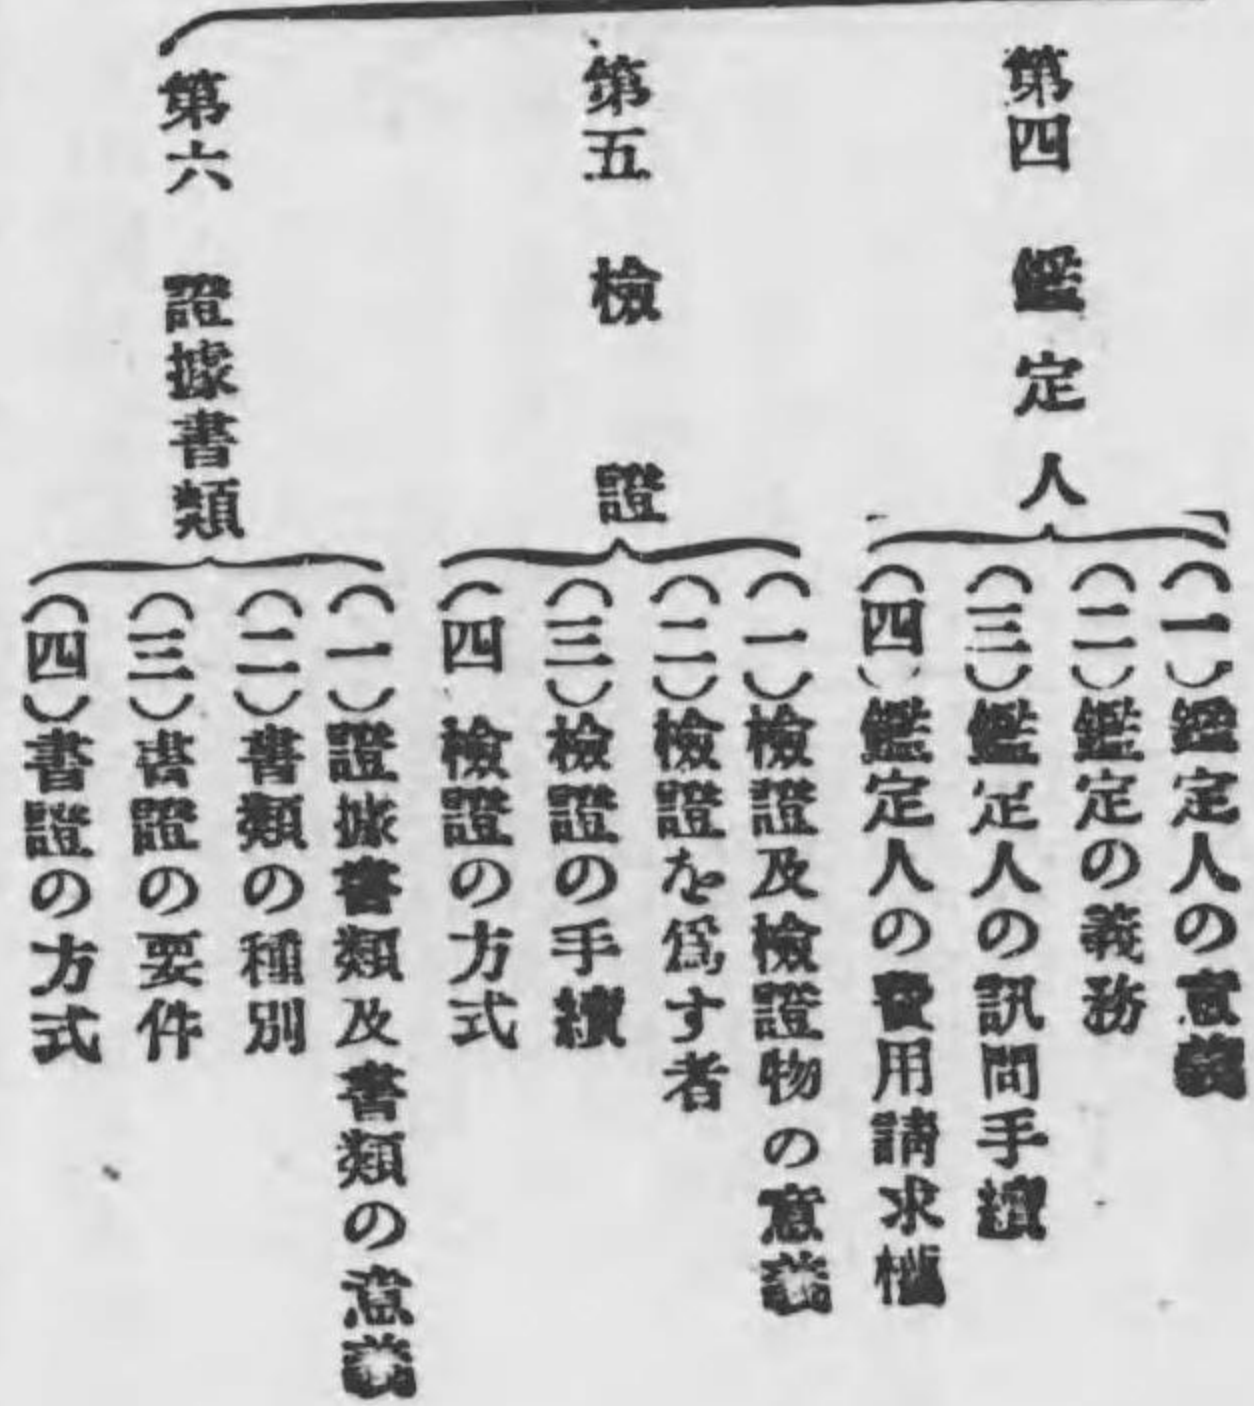 第四 鑑定人
(一)鑑定人の意義
(二)鑑定の義務
(三)鑑定人の訊問手續
(四)鑑定人の費用請求權
第五 檢證
(一)檢證及檢證物の意義
(二)檢證を爲す者
(三)檢證の手續
(四 檢證の方式
第六 證據書類
(一)證據書類及書類の意義
(二)書類の種別
(三)書證の要件
(四)書證の方式